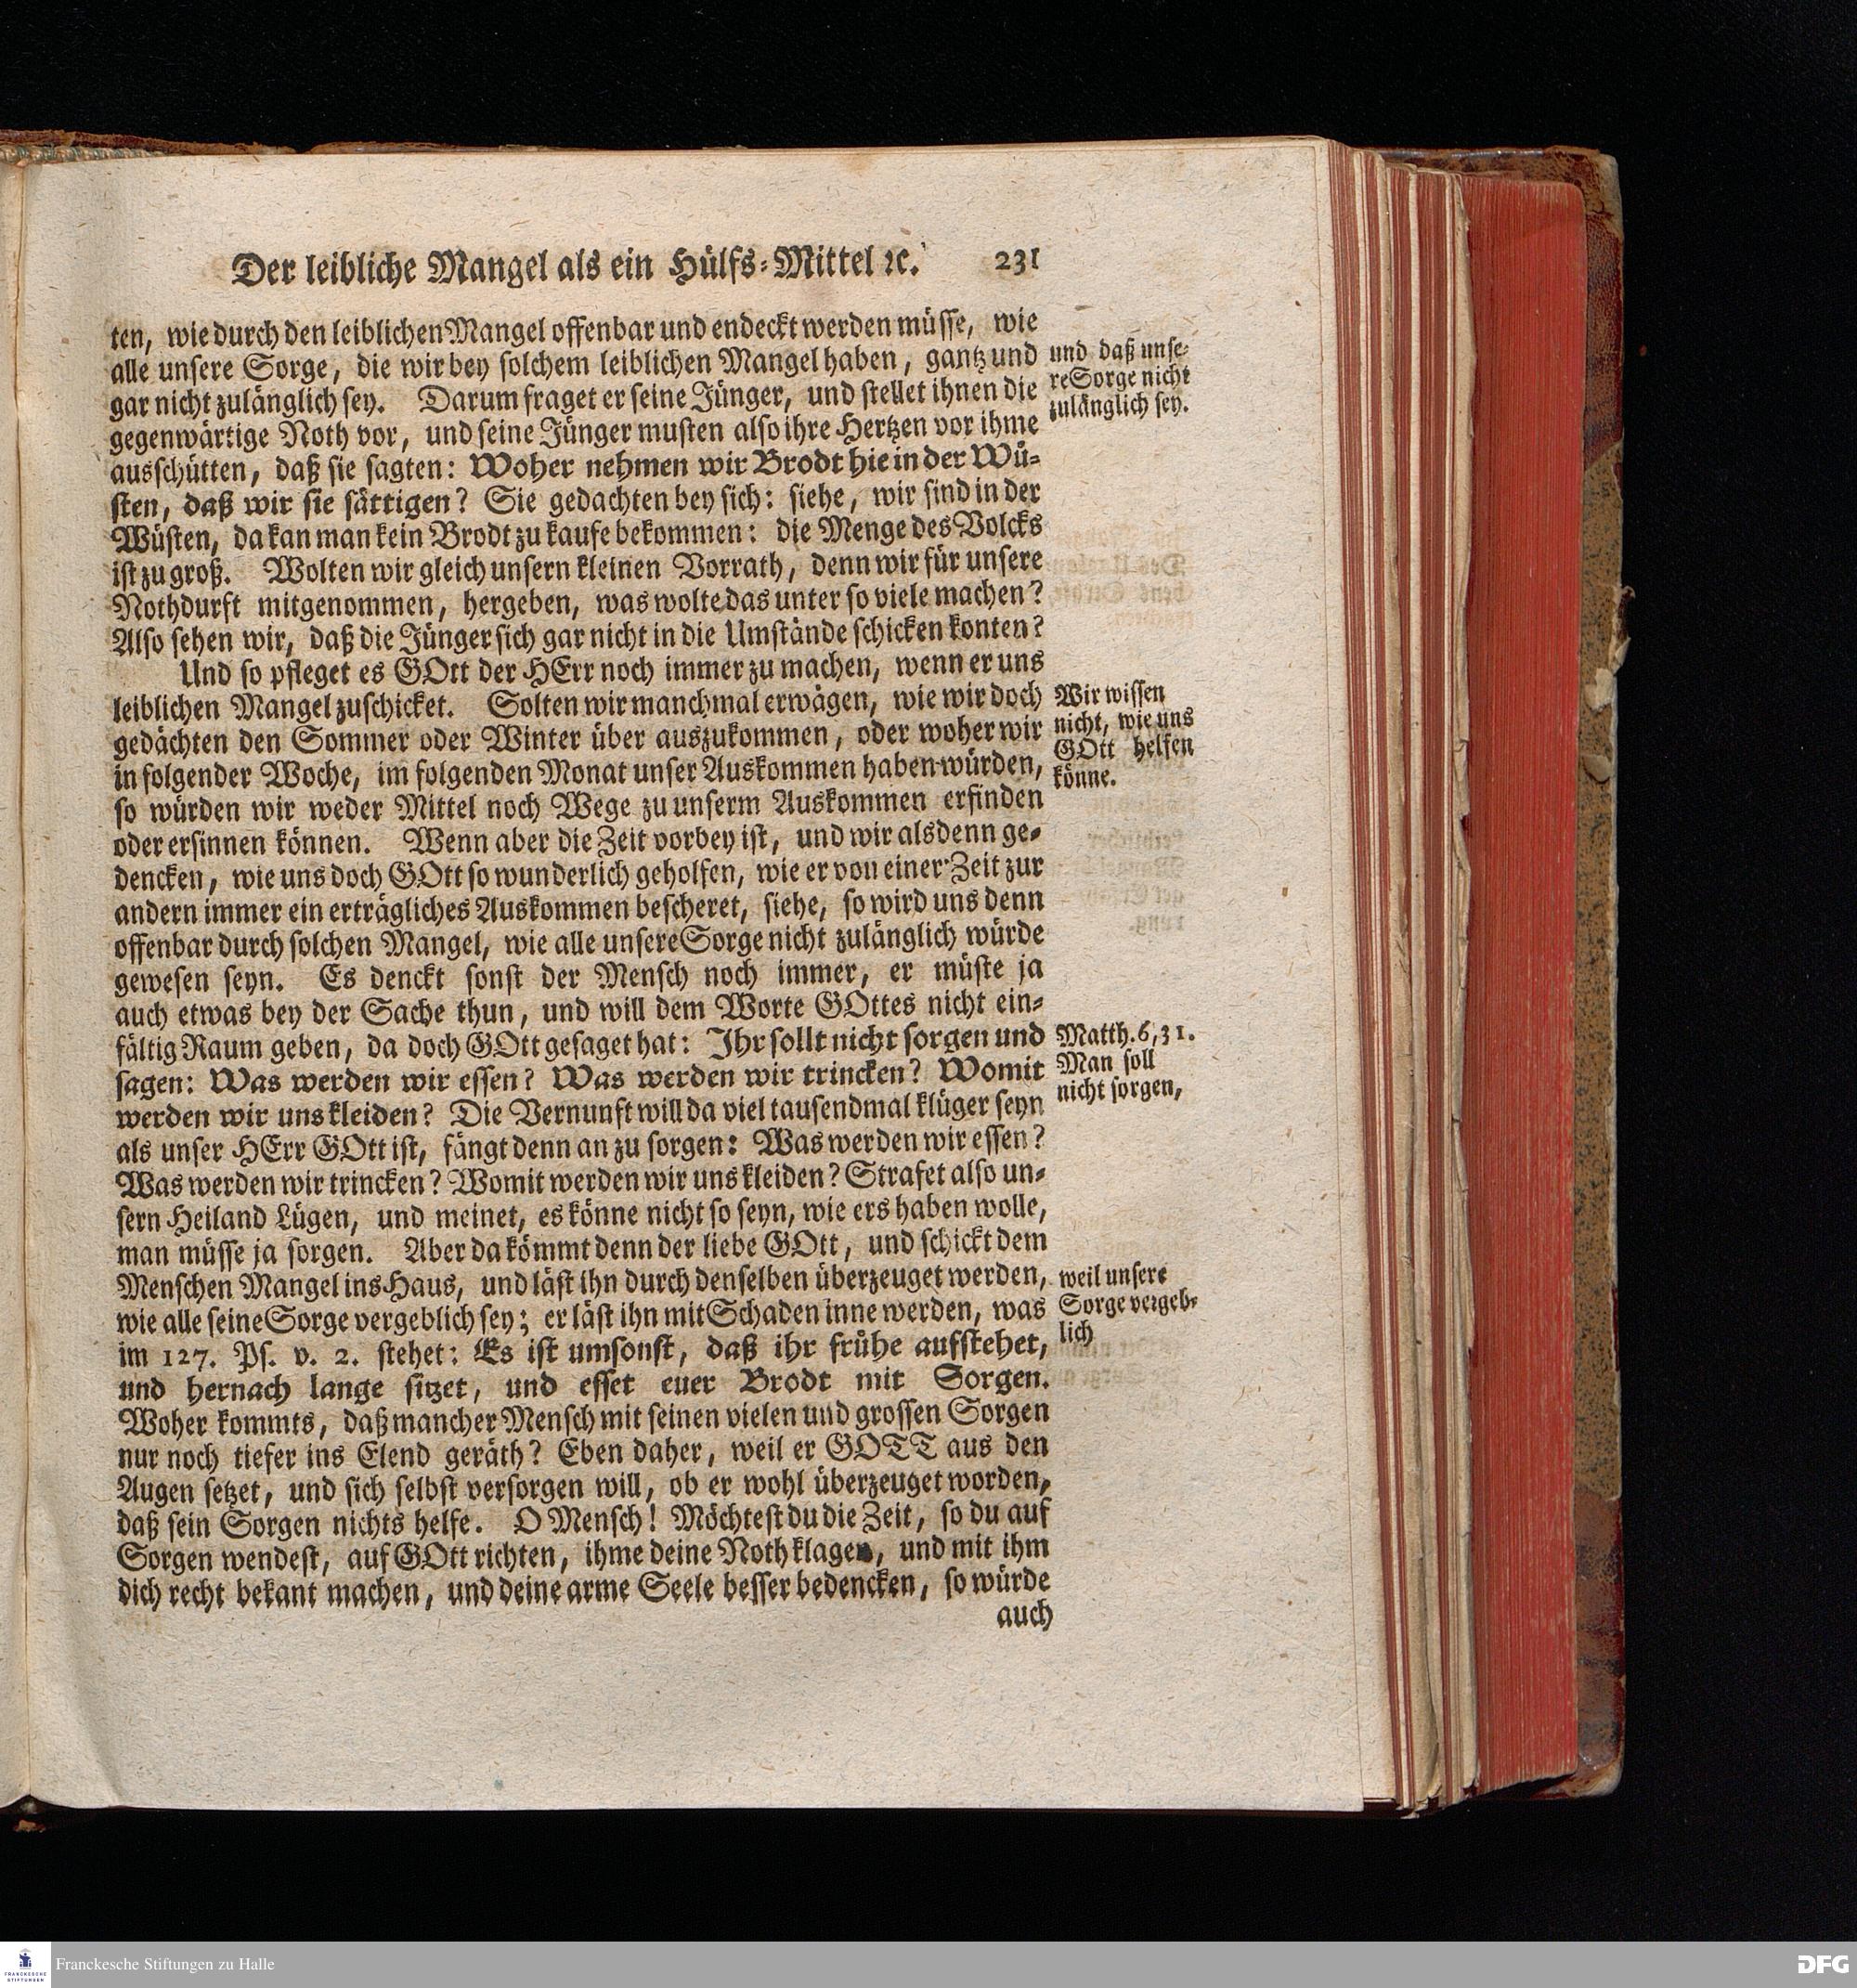 Der leibliche Mangel als ein Hülfs-Mittel ꝛc. 231
ten, wie durch den leiblichen Mangel offenbar und endeckt werden müsse, wie
alle unsere Sorge, die wir bey solchem leiblichen Mangel haben, gantz und
gar nicht zulänglich sey. Darum fraget er seine Jünger, und stellet ihnen die
gegenwärtige Noth vor, und seine Jünger musten also ihre Hertzen vor ihme
ausschütten, daß sie sagten: Woher nehmen wir Brodt hie in der Wü-
sten, daß wir sie sättigen? Sie gedachten bey sich: siehe, wir sind in der
Wüsten, da kan man kein Brodt zu kaufe bekommen: die Menge des Volcks
ist zu groß. Wolten wir gleich unsern kleinen Vorrath, denn wir für unsere
Nothdurft mitgenommen, hergeben, was wolte das unter so viele machen?
Also sehen wir, daß die Jünger sich gar nicht in die Umstände schicken konten?
Und so pfleget es GOtt der HErr noch immer zu machen, wenn er uns
leiblichen Mangel zuschicket. Solten wir manchmal erwägen, wie wir doch
gedächten den Sommer oder Winter über auszukommen, oder woher wir
in folgender Woche, im folgenden Monat unser Auskommen haben würden,
so würden wir weder Mittel noch Wege zu unserm Auskommen erfinden
oder ersinnen können. Wenn aber die Zeit vorbey ist, und wir alsdenn ge-
dencken, wie uns doch GOtt so wunderlich geholfen, wie er von einer Zeit zur
andern immer ein erträgliches Auskommen bescheret, siehe, so wird uns denn
offenbar durch solchen Mangel, wie alle unsere Sorge nicht zulänglich würde
gewesen seyn. Es denckt sonst der Mensch noch immer, er müste ja
auch etwas bey der Sache thun, und will dem Worte GOttes nicht ein-
fältig Raum geben, da doch GOtt gesaget hat: Ihr sollt nicht sorgen und
sagen: Was werden wir essen? Was werden wir trincken? Womit
werden wir uns kleiden? Die Vernunft will da viel tausendmal klüger seyn
als unser HErr GOtt ist, fängt denn an zu sorgen: Was werden wir essen?
Was werden wir trincken? Womit werden wir uns kleiden? Strafet also un-
sern Heiland Lügen, und meinet, es könne nicht so seyn, wie ers haben wolle,
man müsse ja sorgen. Aber da kömmt denn der liebe GOtt, und schickt dem
Menschen Mangel ins Haus, und läst ihn durch denselben überzeuget werden,
wie alle seine Sorge vergeblich sey; er läst ihn mit Schaden inne werden, was
im 127. Ps. v. 2. stehet: Es ist umsonst, daß ihr frühe aufstehet,
und hernach lange sitzet, und esset euer Brodt mit Sorgen.
Woher kommts, daß mancher Mensch mit seinen vielen und grossen Sorgen
nur noch tiefer ins Elend geräth? Eben daher, weil er GOTT aus den
Augen setzet, und sich selbst versorgen will, ob er wohl überzeuget worden,
daß sein Sorgen nichts helfe. O Mensch! Möchtest du die Zeit, so du auf
Sorgen wendest, auf GOtt richten, ihme deine Noth klagen, und mit ihm
dich recht bekant machen, und deine arme Seele besser bedencken, so würde
auch
und daß unse-
re Sorge nicht
zulänglich sey.
Wir wissen
nicht, wie uns
GOtt helfen
könne.
Matth. 6, 31.
Man soll
nicht sorgen,
weil unsere
Sorge vergeb-
lich
FRANCKESCHE
STIFTUNGEN
Franckesche Stiftungen zu Halle
DFG